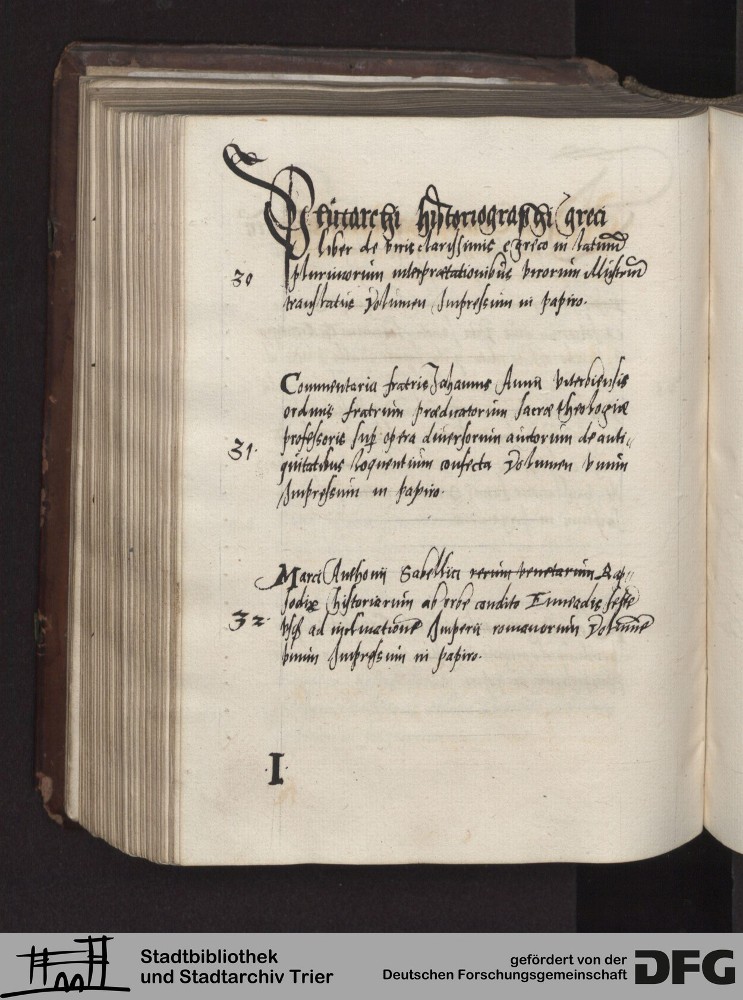 Plutarchi historiographi greci
liber de viris clarissimis e greco in latinū
30 plurimorum interprætationibus virorum Illustriū
translatus Volumen Impressum in papiro.
Commentaria fratris Iohannis Annii viterbiensis
ordinis fratrum prædicatorum sacræ theologiæ
31. professoris sup opera diuersorum auctorum de anti,,
quitatibus loquentium confecta Volumen vnum
Impressum in papiro.
Marci Anthonii Sabellici rerum venetarum Rap,,
sodiæ historiarum ab orbe condito Enneadis sexte
32 vsq ad inclinationē Imperii romanorum Volumē
vnum Impressum in papiro.
·I
Stadtbibliothek
und Stadtarchiv Trier
gefördert von der
Deutschen Forschungsgemeinschaft
DFG